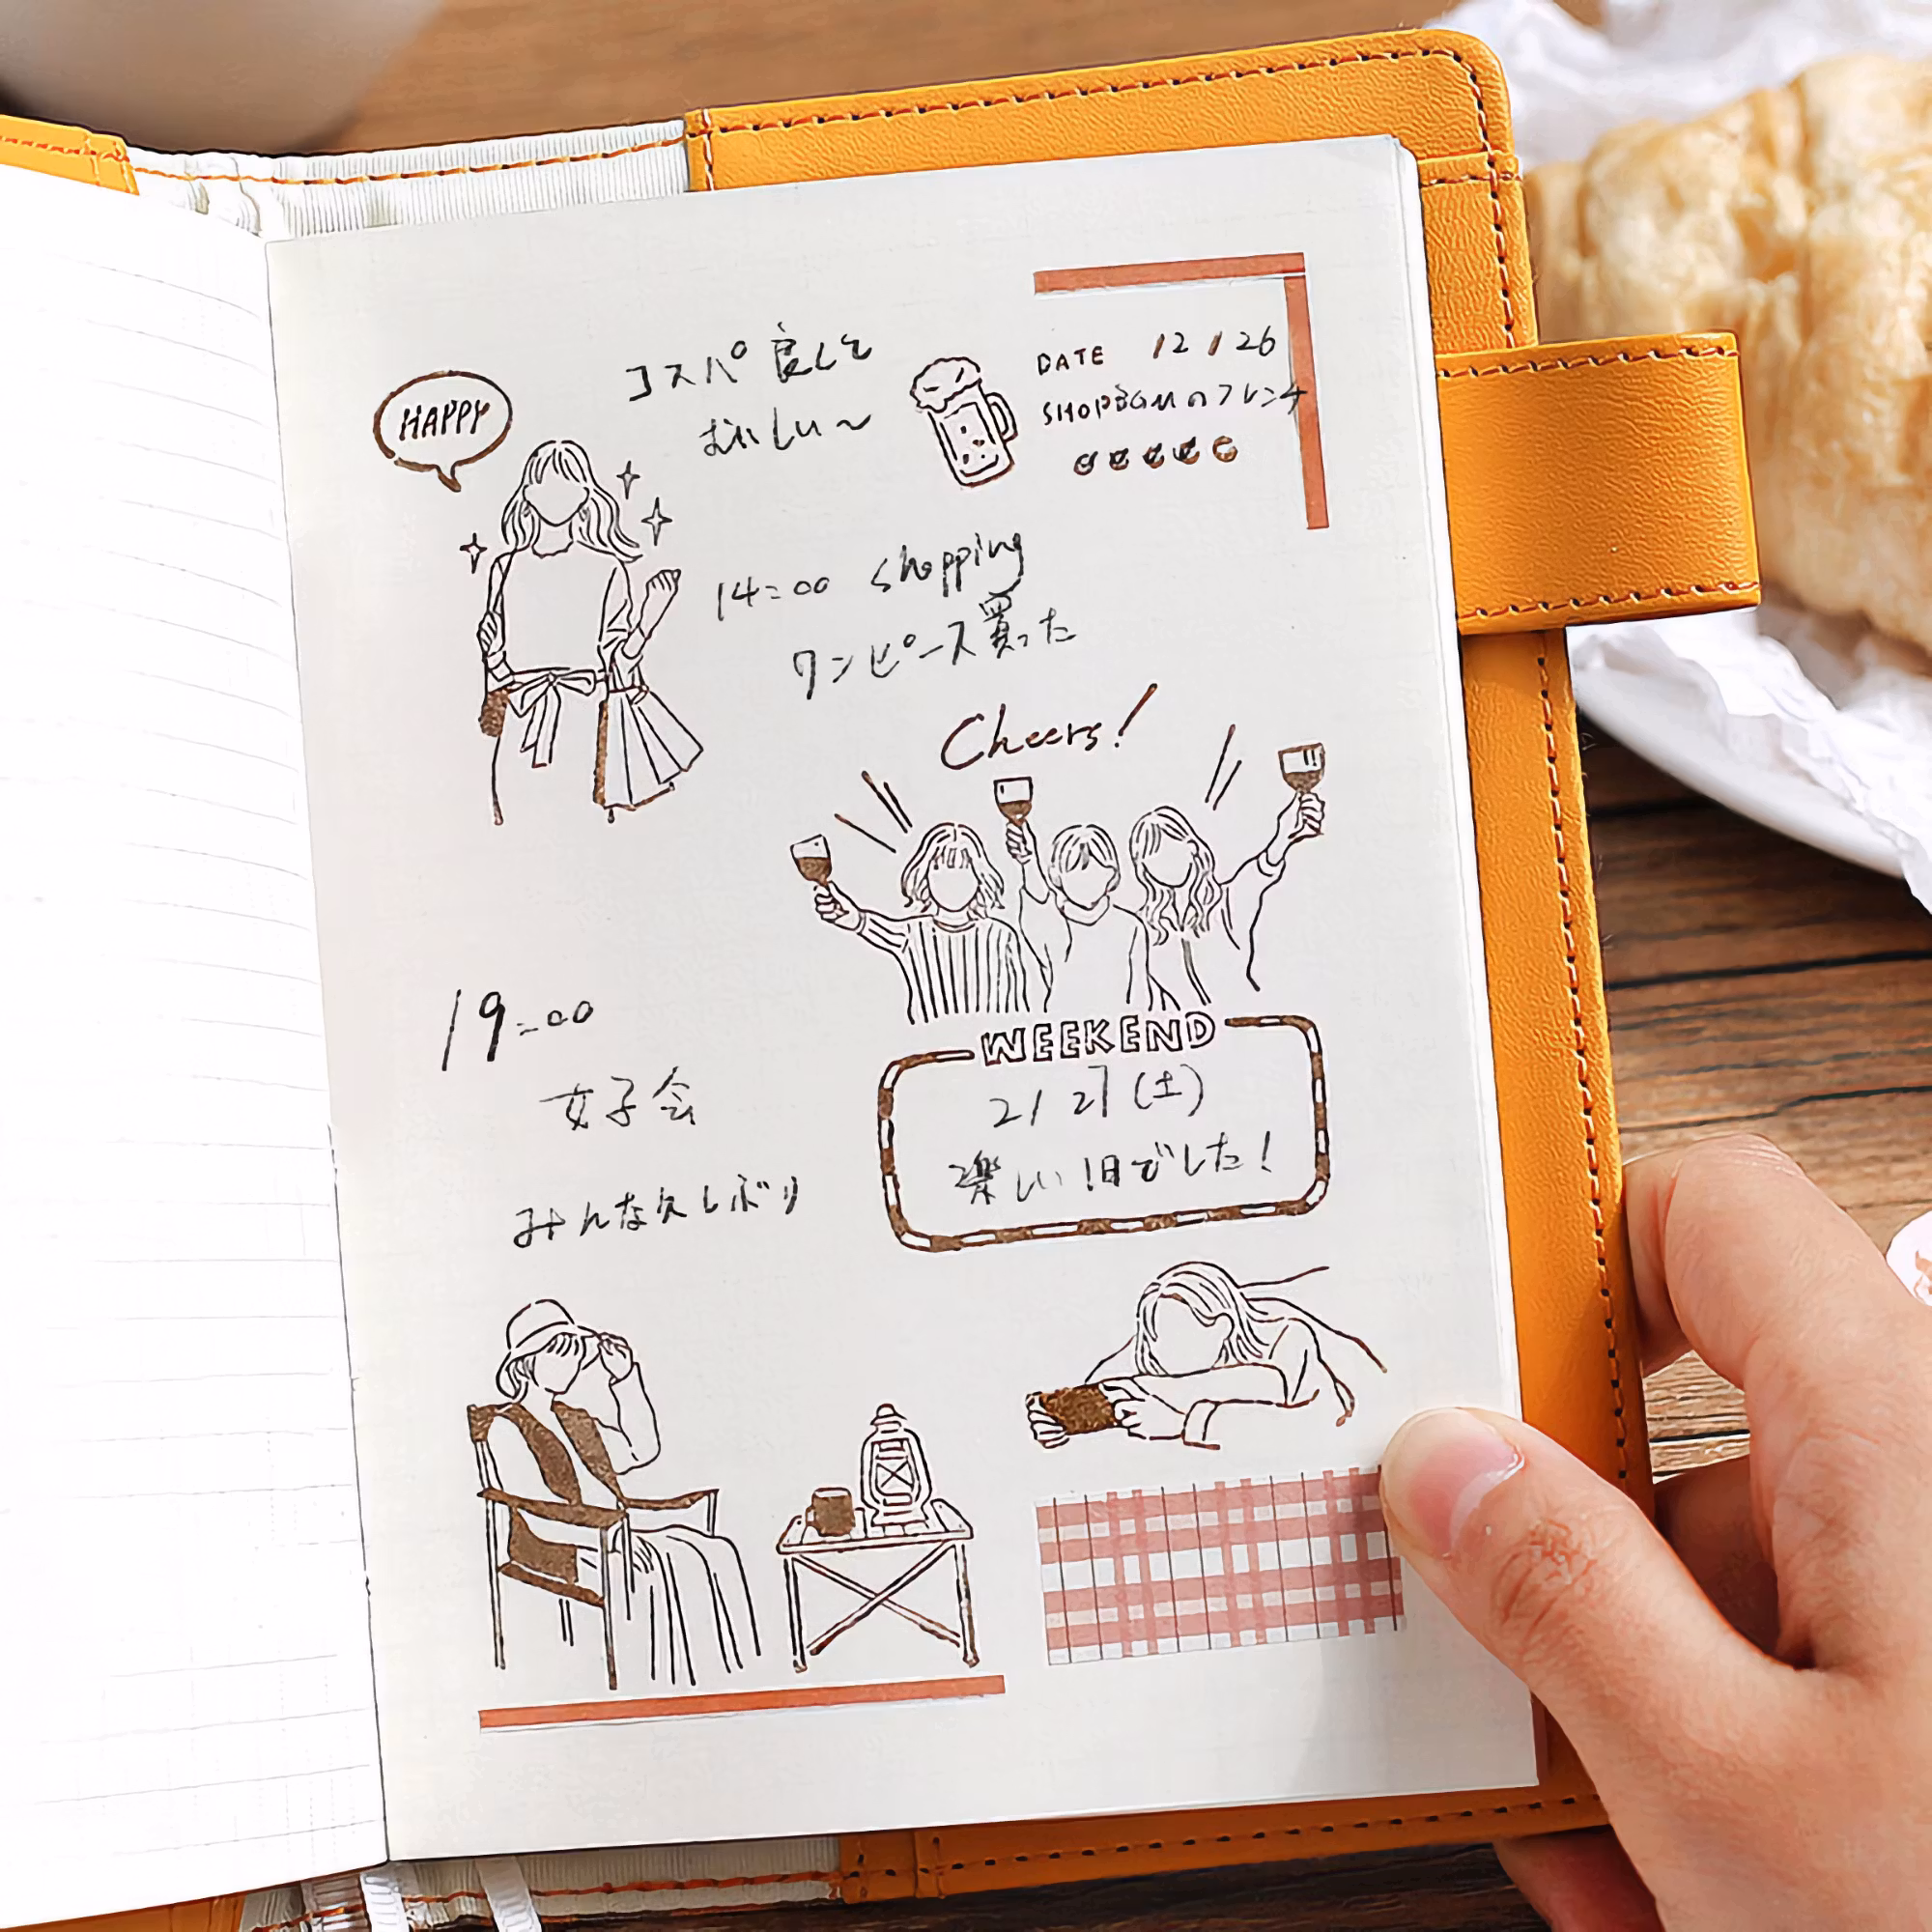 HAPPY
コスパ良くて
おいしい〜
DATE 12/26
SHOP 銀座のフレンチ
14:00 shopping
ワンピース買った
Cheers!
19:00
女子会
みんな久しぶり
WEEKEND
2/27(土)
楽しい1日でした!